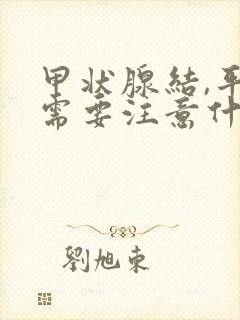 甲状腺結,平
需要注意什
劉旭東